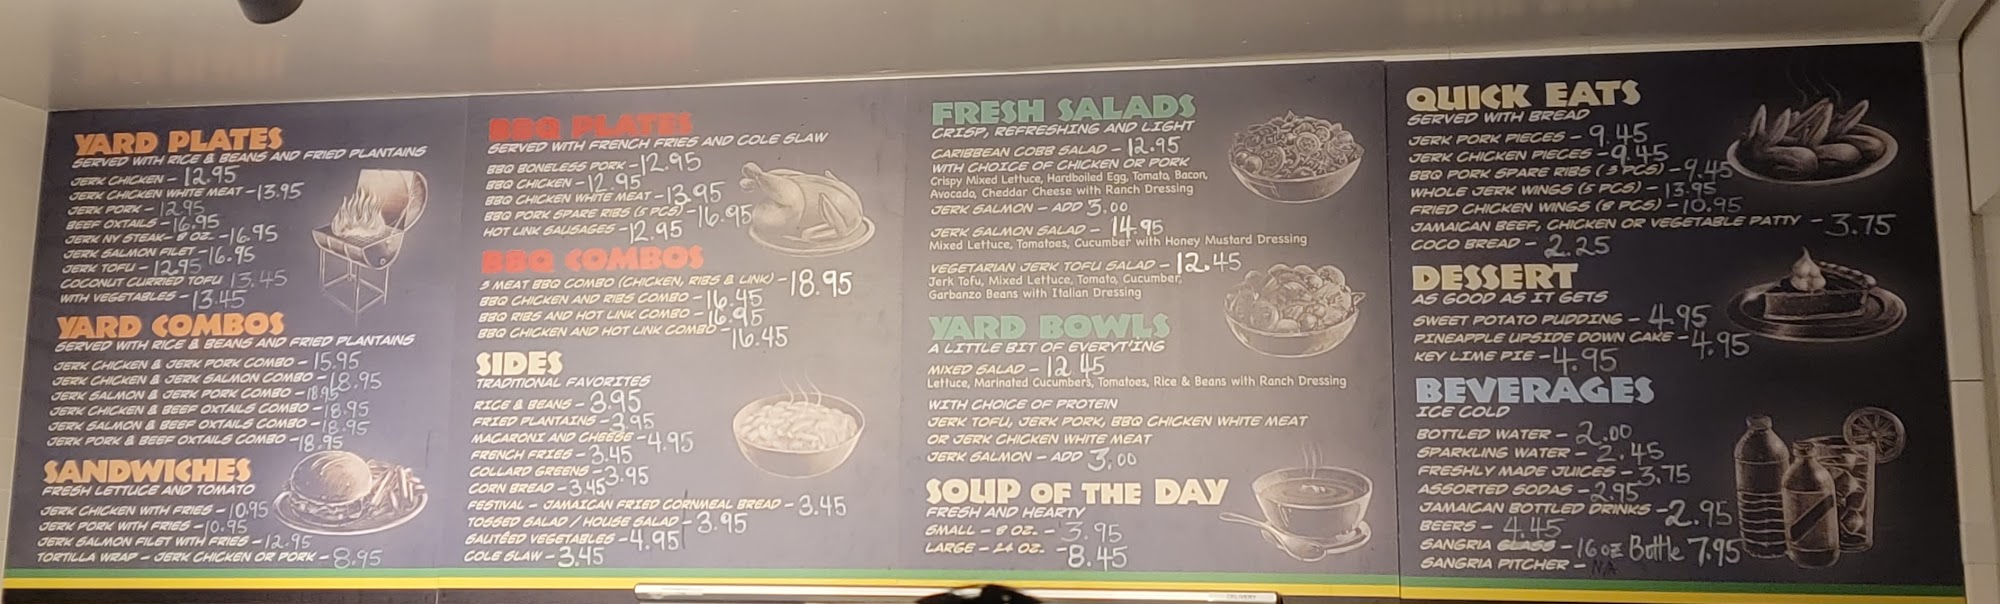 YARD PLATES
SERVED WITH RICE & BEANS AND FRIED PLANTAINS
JERK CHICKEN - 12.95
JERK CHICKEN WHITE MEAT - 13.95
JERK PORK - 12.95
BEEF OXTAILS - 16.95
JERK NY STEAK - 8 OZ. - 16.95
JERK SALMON FILET - 16.95
JERK TOFU - 12.95
COCONUT CURRIED TOFU 13.45
WITH VEGETABLES - 13.45
YARD COMBOS
SERVED WITH RICE & BEANS AND FRIED PLANTAINS
JERK CHICKEN & JERK PORK COMBO - 15.95
JERK CHICKEN & JERK SALMON COMBO - 18.95
JERK SALMON & JERK PORK COMBO - 18.95
JERK CHICKEN & BEEF OXTAILS COMBO - 18.95
JERK SALMON & BEEF OXTAILS COMBO - 18.95
JERK PORK & BEEF OXTAILS COMBO - 18.95
SANDWICHES
FRESH LETTUCE AND TOMATO
JERK CHICKEN WITH FRIES - 10.95
JERK PORK WITH FRIES - 10.95
JERK SALMON FILET WITH FRIES - 12.95
TORTILLA WRAP - JERK CHICKEN OR PORK - 8.95
BBQ PLATES
SERVED WITH FRENCH FRIES AND COLE SLAW
BBQ BONELESS PORK - 12.95
BBQ CHICKEN - 12.95
BBQ CHICKEN WHITE MEAT - 13.95
BBQ PORK SPARE RIBS (5 PCS) - 16.95
HOT LINK SAUSAGES - 12.95
BBQ COMBOS
3 MEAT BBQ COMBO (CHICKEN, RIBS & LINK) - 18.95
BBQ CHICKEN AND RIBS COMBO - 16.45
BBQ RIBS AND HOT LINK COMBO - 16.95
BBQ CHICKEN AND HOT LINK COMBO - 16.45
SIDES
TRADITIONAL FAVORITES
RICE & BEANS - 3.95
FRIED PLANTAINS - 3.95
MACARONI AND CHEESE - 4.95
FRENCH FRIES - 3.45
COLLARD GREENS - 3.95
CORN BREAD - 3.45
FESTIVAL - JAMAICAN FRIED CORNMEAL BREAD - 3.45
TOSSED SALAD / HOUSE SALAD - 3.95
SAUTÉED VEGETABLES - 4.95
COLE SLAW - 3.45
FRESH SALADS
CRISP, REFRESHING AND LIGHT
CARIBBEAN COBB SALAD - 12.95
WITH CHOICE OF CHICKEN OR PORK
Crispy Mixed Lettuce, Hardboiled Egg, Tomato, Bacon,
Avocado, Cheddar Cheese with Ranch Dressing
JERK SALMON - ADD 3.00
JERK SALMON SALAD - 14.95
Mixed Lettuce, Tomatoes, Cucumber with Honey Mustard Dressing
VEGETARIAN JERK TOFU SALAD - 12.45
Jerk Tofu, Mixed Lettuce, Tomato, Cucumber,
Garbanzo Beans with Italian Dressing
YARD BOWLS
A LITTLE BIT OF EVERYT'ING
MIXED SALAD - 12 45
Lettuce, Marinated Cucumbers, Tomatoes, Rice & Beans with Ranch Dressing
WITH CHOICE OF PROTEIN
JERK TOFU, JERK PORK, BBQ CHICKEN WHITE MEAT
OR JERK CHICKEN WHITE MEAT
JERK SALMON - ADD 3.00
SOUP OF THE DAY
FRESH AND HEARTY
SMALL - 8 OZ. - 3.95
LARGE - 24 OZ. - 8.45
QUICK EATS
SERVED WITH BREAD
JERK PORK PIECES - 9.45
JERK CHICKEN PIECES - 9.45
BBQ PORK SPARE RIBS (3 PCS) - 9.45
WHOLE JERK WINGS (5 PCS) - 13.95
FRIED CHICKEN WINGS (8 PCS) - 10.95
JAMAICAN BEEF, CHICKEN OR VEGETABLE PATTY - 3.75
COCO BREAD - 2.25
DESSERT
AS GOOD AS IT GETS
SWEET POTATO PUDDING - 4.95
PINEAPPLE UPSIDE DOWN CAKE - 4.95
KEY LIME PIE - 4.95
BEVERAGES
ICE COLD
BOTTLED WATER - 2.00
SPARKLING WATER - 2.45
FRESHLY MADE JUICES - 3.75
ASSORTED SODAS - 2.95
JAMAICAN BOTTLED DRINKS - 2.95
BEERS - 4.45
SANGRIA GLASS - 16 oz Bottle 7.95
SANGRIA PITCHER - NA
DELIVERY